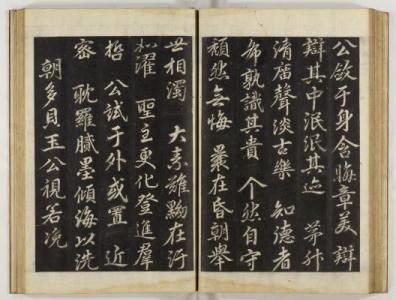 公斂于身含晦章美辯
辯其中泯泯其迹
清廟聲淡古樂 知德者
希孰識其貴 介然自守
頹然無悔 曩在昏朝舉
世相濁 大素雖黝在汙
如濯 聖主更化登進羣
哲 公試于外或置 近
密 耽羅贓墨傾海以洗
朝多貝玉公視若浼